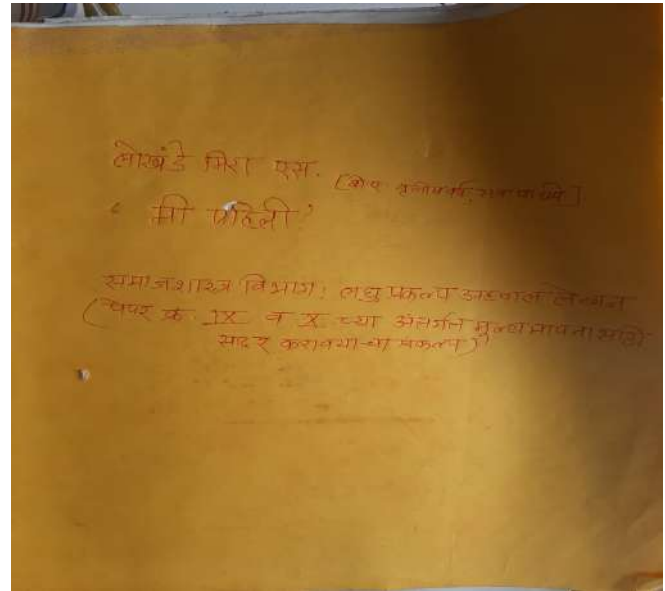 लोखंडे मिरा एस. [बी.ए. तृतीय वर्ष,
' मी पाहिली '
समाजशास्त्र विभाग: लघु प्रकल्प अहवाल लेखन
(पेपर क्र. IX व X च्या अंतर्गत मुल्यमापनासाठी
सादर करावयाचा प्रकल्प)